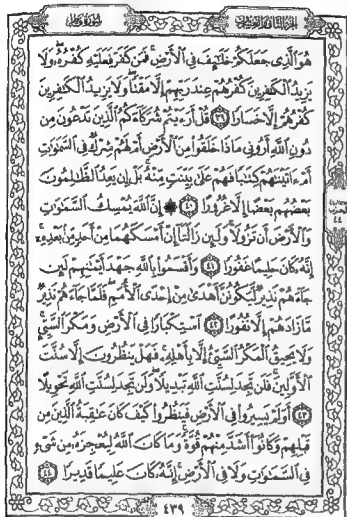 سورة فاطر
الجزء الثاني والعشرون
هُوَ الَّذِى جَعَلَكُمْ خَلَٰٓئِفَ فِى الْأَرْضِ ۚ فَمَن كَفَرَ فَعَلَيْهِ كُفْرُهُۥ ۖ وَلَا
يَزِيدُ الْكَٰفِرِينَ كُفْرُهُمْ عِندَ رَبِّهِمْ إِلَّا مَقْتًا ۖ وَلَا يَزِيدُ الْكَٰفِرِينَ
كُفْرُهُمْ إِلَّا خَسَارًا ٣٩ قُلْ أَرَءَيْتُمْ شُرَكَآءَكُمُ الَّذِينَ تَدْعُونَ مِن
دُونِ اللَّهِ أَرُونِى مَاذَا خَلَقُوا۟ مِنَ الْأَرْضِ أَمْ لَهُمْ شِرْكٌ فِى السَّمَٰوَٰتِ
أَمْ ءَاتَيْنَٰهُمْ كِتَٰبًا فَهُمْ عَلَىٰ بَيِّنَتٍ مِّنْهُ ۚ بَلْ إِن يَعِدُ الظَّٰلِمُونَ
بَعْضُهُم بَعْضًا إِلَّا غُرُورًا ٤٠ ۞ إِنَّ اللَّهَ يُمْسِكُ السَّمَٰوَٰتِ
وَالْأَرْضَ أَن تَزُولَا ۚ وَلَئِن زَالَتَآ إِنْ أَمْسَكَهُمَا مِنْ أَحَدٍ مِّنۢ بَعْدِهِۦٓ ۚ
إِنَّهُۥ كَانَ حَلِيمًا غَفُورًا ٤١ وَأَقْسَمُوا۟ بِاللَّهِ جَهْدَ أَيْمَٰنِهِمْ لَئِن
جَآءَهُمْ نَذِيرٌ لَّيَكُونُنَّ أَهْدَىٰ مِنْ إِحْدَى الْأُمَمِ ۖ فَلَمَّا جَآءَهُمْ نَذِيرٌ
مَّا زَادَهُمْ إِلَّا نُفُورًا ٤٢ اسْتِكْبَارًا فِى الْأَرْضِ وَمَكْرَ السَّيِّئِ ۚ
وَلَا يَحِيقُ الْمَكْرُ السَّيِّئُ إِلَّا بِأَهْلِهِۦ ۚ فَهَلْ يَنظُرُونَ إِلَّا سُنَّتَ
الْأَوَّلِينَ ۚ فَلَن تَجِدَ لِسُنَّتِ اللَّهِ تَبْدِيلًا ۖ وَلَن تَجِدَ لِسُنَّتِ اللَّهِ تَحْوِيلًا
٤٣ أَوَلَمْ يَسِيرُوا۟ فِى الْأَرْضِ فَيَنظُرُوا۟ كَيْفَ كَانَ عَٰقِبَةُ الَّذِينَ مِن
قَبْلِهِمْ وَكَانُوٓا۟ أَشَدَّ مِنْهُمْ قُوَّةً ۚ وَمَا كَانَ اللَّهُ لِيُعْجِزَهُۥ مِن شَىْءٍ
فِى السَّمَٰوَٰتِ وَلَا فِى الْأَرْضِ ۚ إِنَّهُۥ كَانَ عَلِيمًا قَدِيرًا ٤٤
٤٣٩
الحزب
٤٤